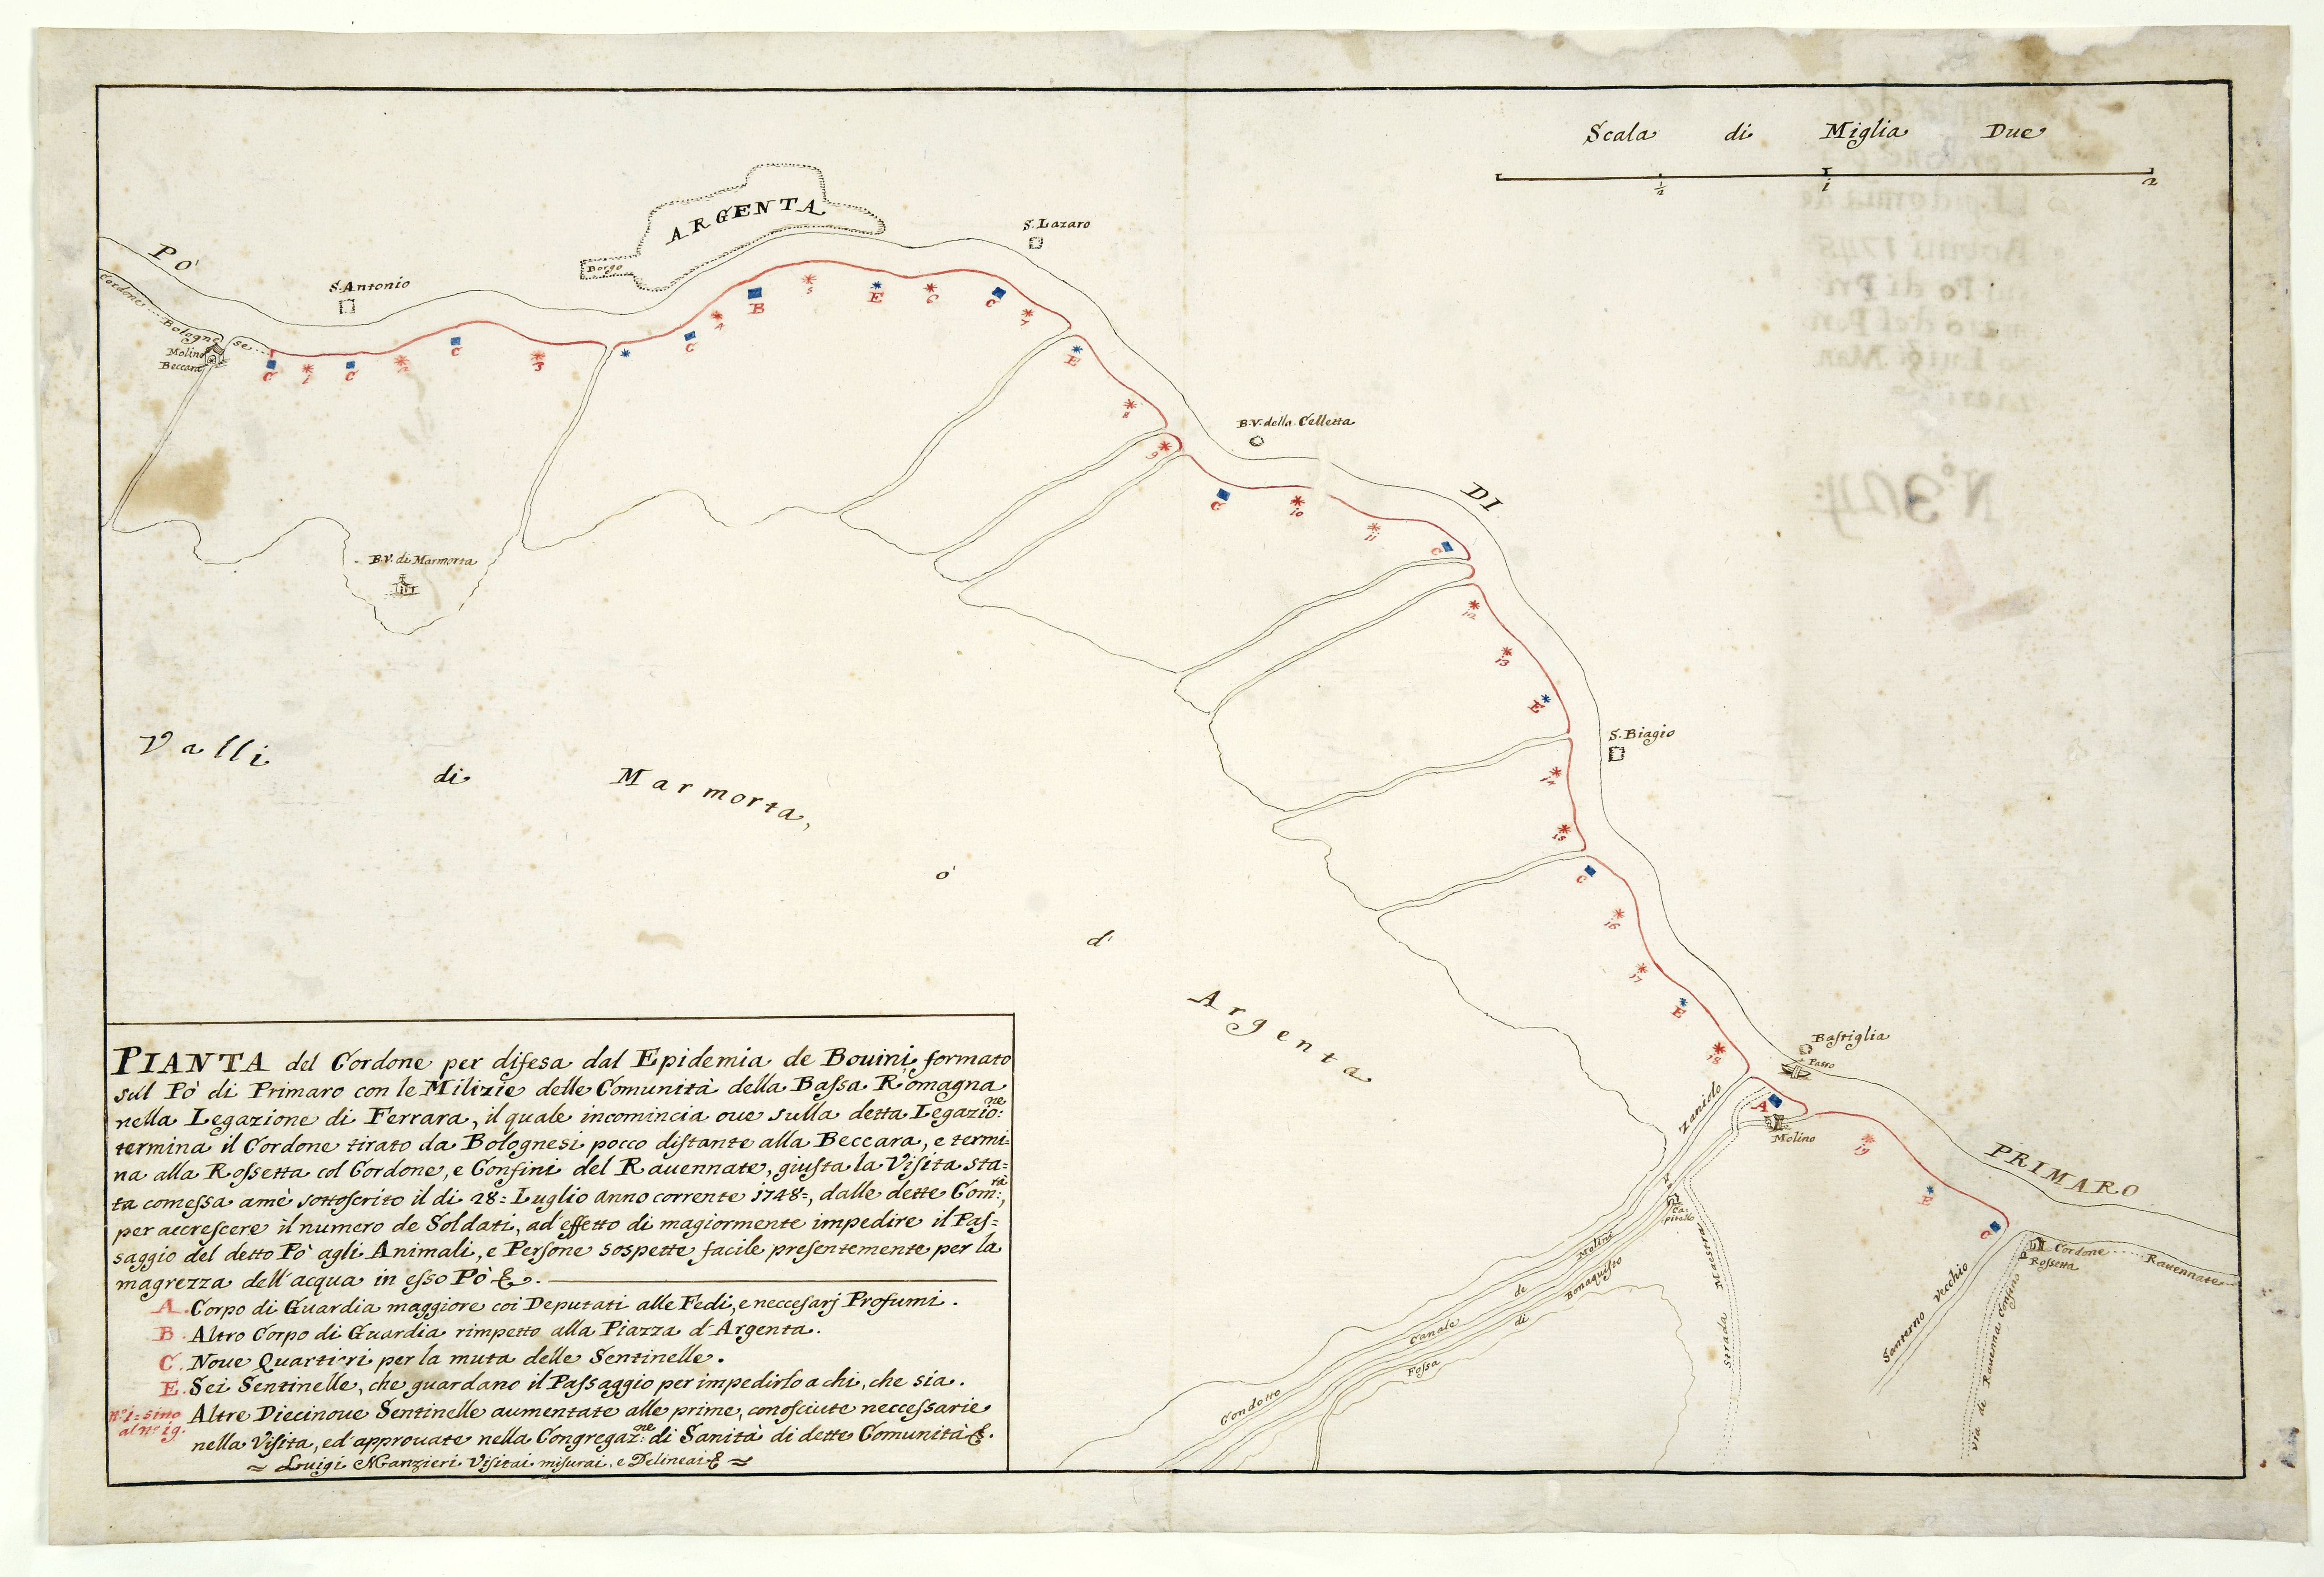 Scala di Miglia Due
½ 1 2
PO'
Cordone Bolognese
Molino
Beccara
S. Antonio
Borgo
ARGENTA
S. Lazaro
C 1 C 2 C 3 C 4 B 5 E 6 C 7
E
8
9
B.V. della Celletta
C 10 11 C
DI
12
13
E
S. Biagio
14
15
C
16
17
E
18
B.V. di Marmorta
Valli di Marmorta,
o'
d'
Argenta
Bastiglia
Passo
A
Molino
19
E
C
PRIMARO
Zaniolo
Cordone Ravennate
Rossetta
Santerno Vecchio
Via di Ravenna Confino
Strada Maestra
Condotto
Canale de Molini
Fossa di Bonaquisto
PIANTA del Cordone per difesa dal Epidemia de Bouini, formato
sul Pò di Primaro con le Milizie delle Comunità della Bassa Romagna
nella Legazione di Ferrara, il quale incomincia oue sulla detta Legazio:ne
termina il Cordone tirato da Bolognesi pocco distante alla Beccara, e termi-
na alla Rossetta col Cordone, e Confini del Rauennate, giusta la Visita sta=
ta comessa amè sottoscrito il di 28= Luglio anno corrente 1748=, dalle dette Com:tà,
per accrescere il numero de Soldati, ad effetto di magiormente impedire il Pas=
saggio del detto Pò agli Animali, e Persone sospette facile presentemente per la
magrezza dell'acqua in esso Pò &.
A. Corpo di Guardia maggiore coi Deputati alle Fedi, e neccesarj Profumi.
B. Altro Corpo di Guardia rimpetto alla Piazza d'Argenta.
C. Noue Quartieri per la muta delle Sentinelle.
E. Sei Sentinelle, che guardano il Passaggio per impedirlo a chi, che sia.
N.º 1= sino al nº 19. Altre Diecinoue Sentinelle aumentate alle prime, conosciute neccessarie
nella Visita, ed approuate nella Congregaz:ne di Sanità di dette Comunità &.
Luigi Manzieri Visitai misurai, e Delineai &